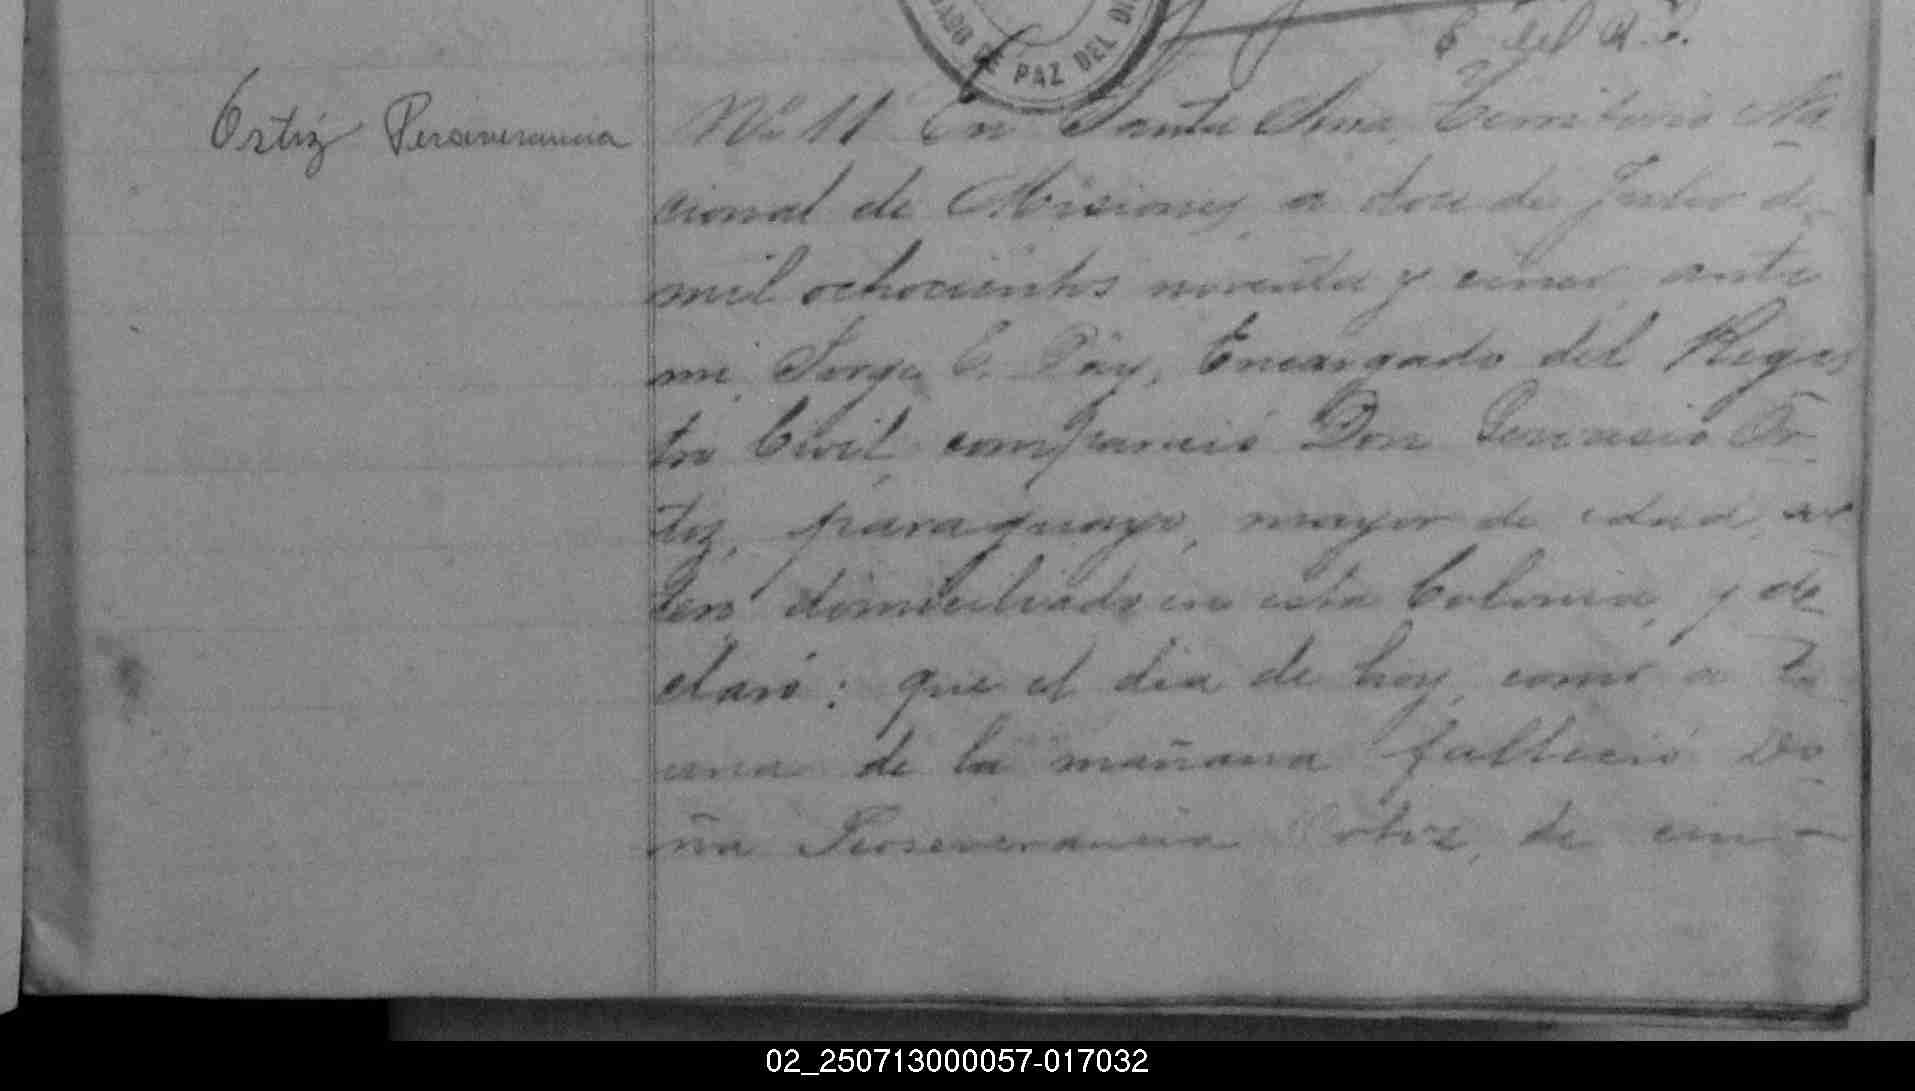 JUZGADO DE PAZ DEL DI
E. del R. C.
Ortiz Perseverancia
No 11 En Santa Ana, Territorio Na-
cional de Misiones, a doce de Julio de
mil ochocientos noventa y cinco, ante
mi Jorge E. Pay, Encargado del Regis
tro Civil, compareció Don Gervasio Or-
tiz, paraguayo, mayor de edad, sol
tero domiciliado en esta Colonia, y de-
claró: que el dia de hoy, como a la
una de la mañana falleció Do-
ña Perseverancia Ortiz, de cin-
02_250713000057-017032